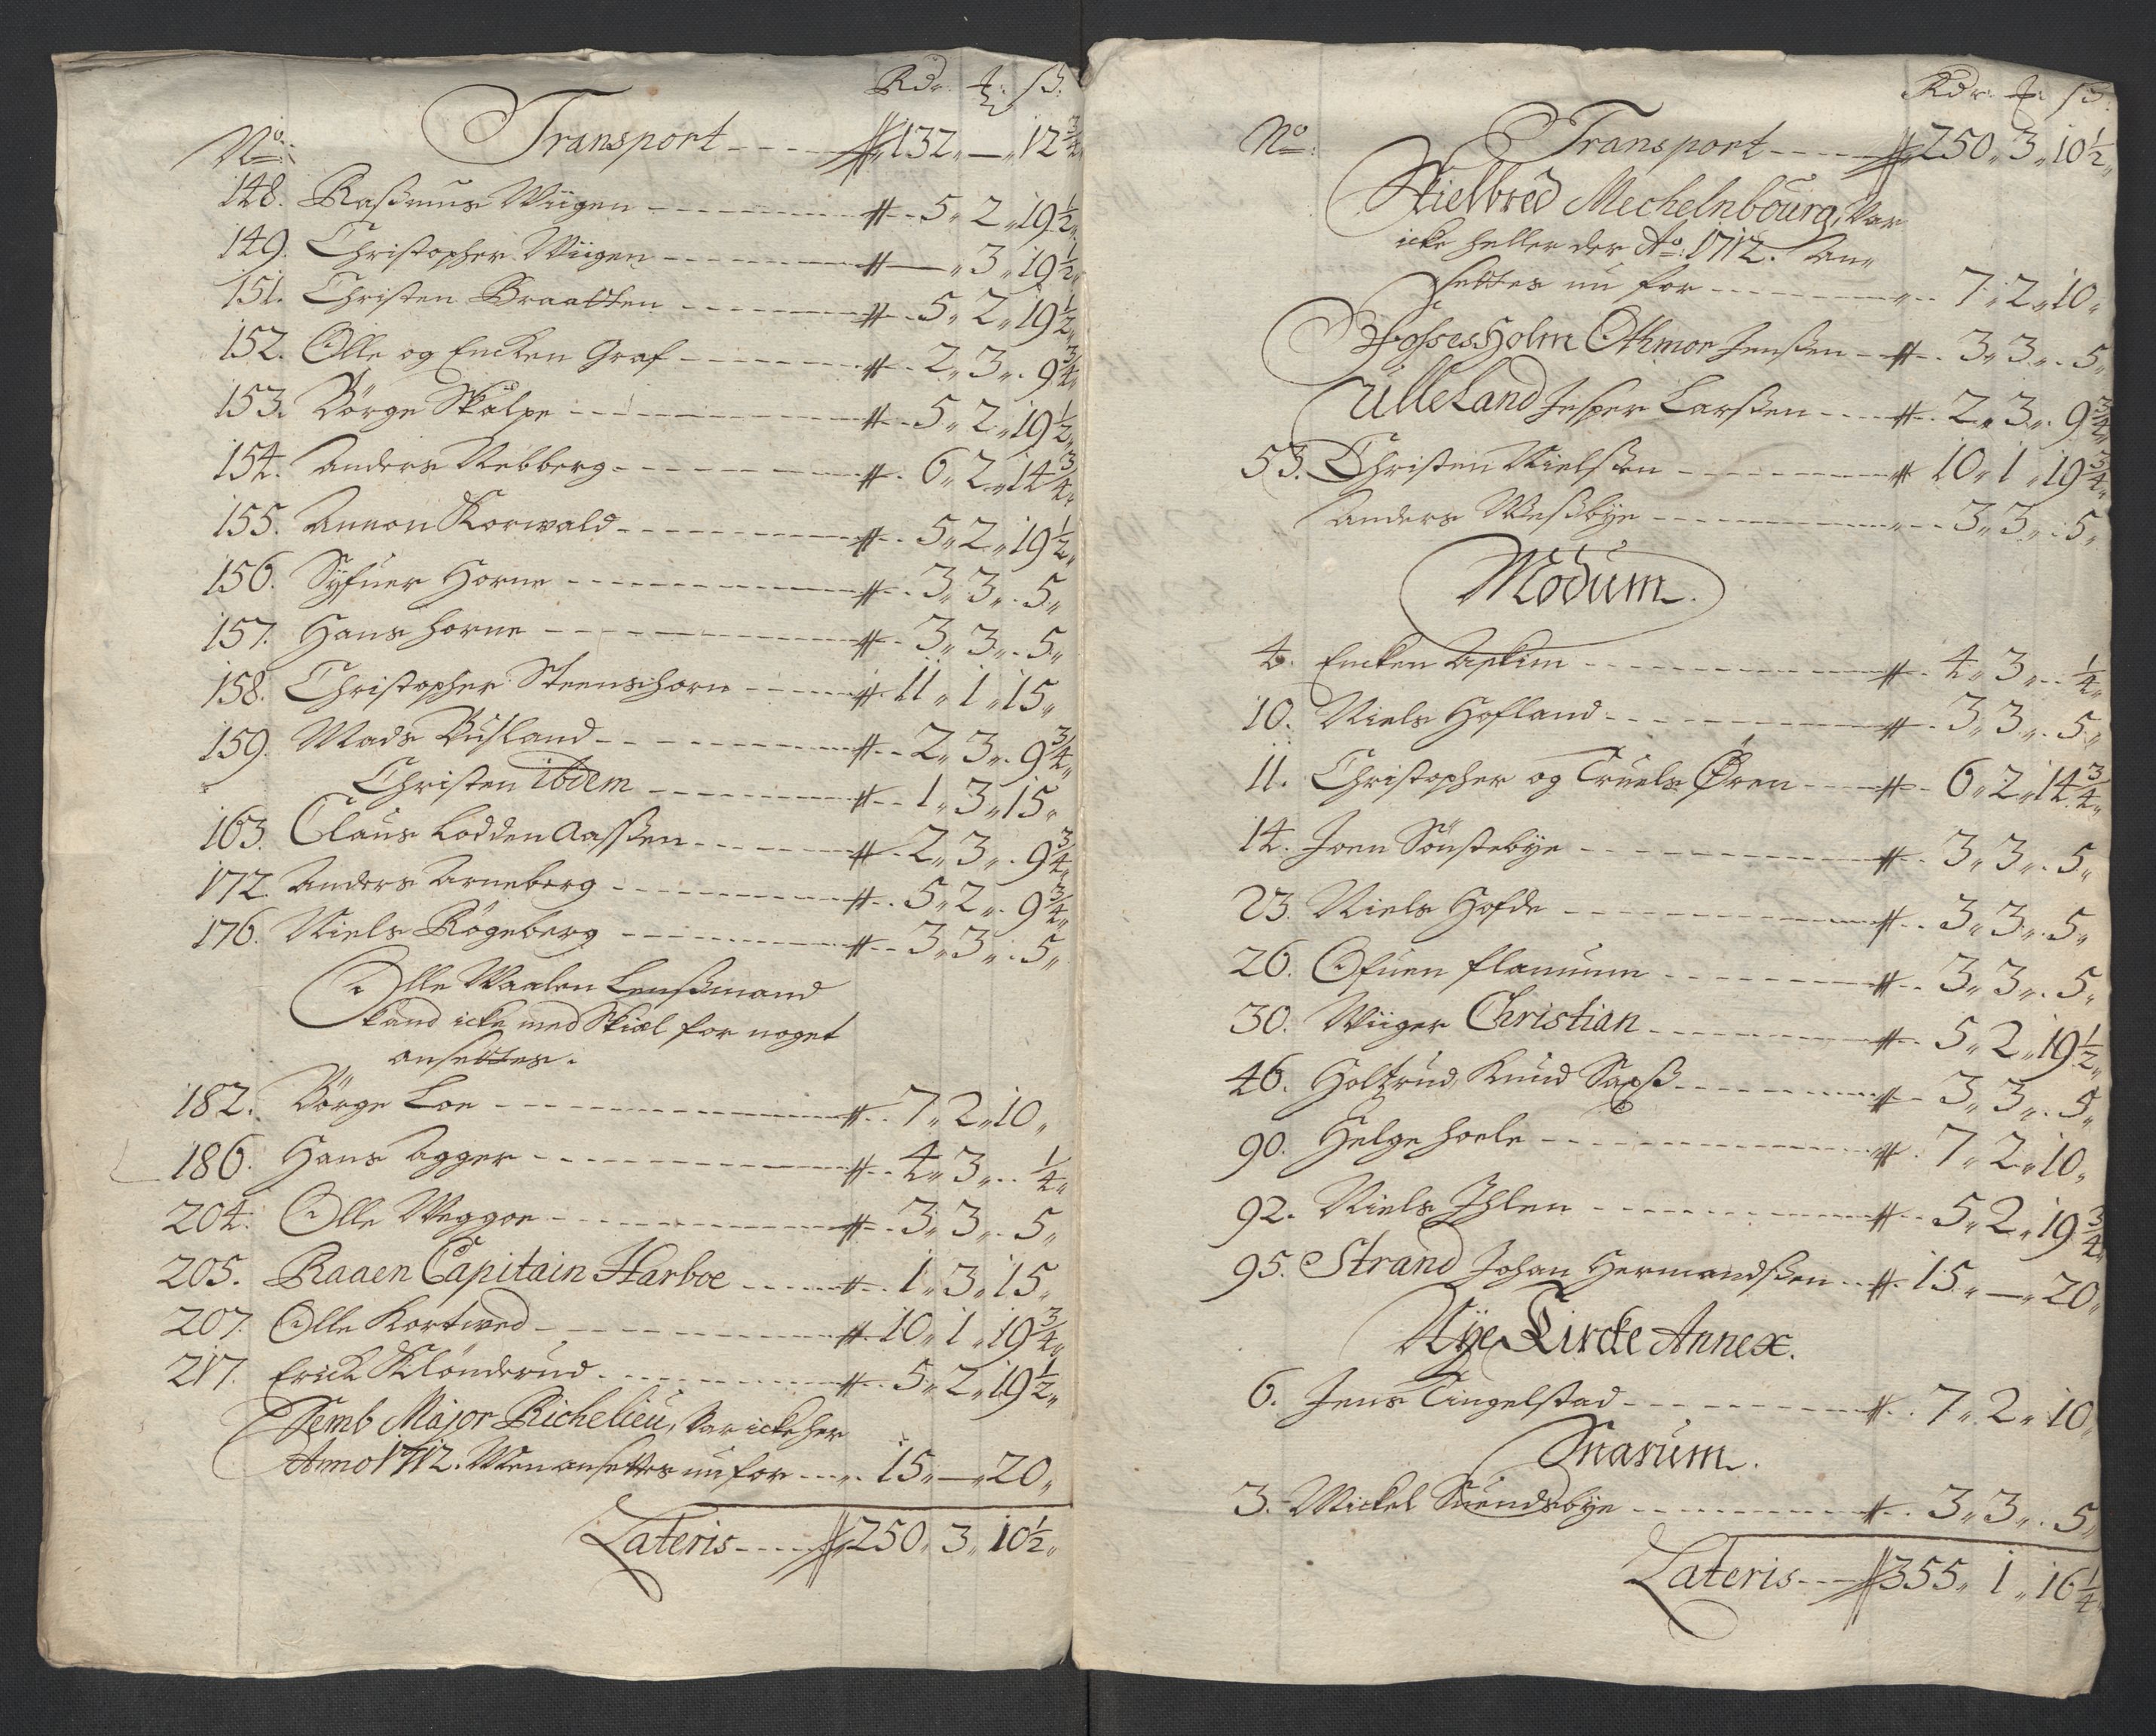 Rdr. ₰: ß:
No: Transport ---- 132„ — „ 12¾
148. Rasmus Wiigen ---- 5„ 2„ 19½„
149. Christopher Wiigen ---- — „ 3„ 19½„
151. Christen Braatten ---- 5„ 2„ 19½„
152. Olle og Encken Graf ---- 2„ 3„ 9¾„
153. Börge Skalpe ---- 5„ 2„ 19½„
154. Anders Nebberg ---- 6„ 2„ 14¾„
155. Amon Korwald ---- 5„ 2„ 19½„
156. Syfuer Horne ---- 3„ 3„ 5„
157. Hans horne ---- 3„ 3„ 5„
158. Christopher Steenshorn ---- 11„ 1„ 15„
159. Mads Rusland ---- 2„ 3„ 9¾„
Christen ibdem ---- 1„ 3„ 15„
163. Claus Lodden Aassen ---- 2„ 3„ 9¾„
172. Anders Arneberg ---- 5„ 2„ 9¾„
176. Niels Rögeberg ---- 3„ 3„ 5„
Olle Waalen Lensmand
kand icke med Skiæl for noget
ansettes.
182. Börge Loe ---- 7„ 2„ 10„
186. Hans Agger ---- 4„ 3„ ¼„
204. Olle Weggoe ---- 3„ 3„ 5„
205. Raaen Capitain Harboe ---- 1„ 3„ 15„
207. Olle Kortwed ---- 10„ 1„ 19¾„
217. Erick Klönderud ---- 5„ 2„ 19½„
Semb Major Richelieu, War icke her
Anno 1712. Men ansettes nu for ---- 15„ — „ 20„
Lateris ---- 250„ 3„ 10½„
Rdr. ₰: ß:
No: Transport ---- 250„ 3„ 10½„
Skielbred Mechelnbourg, War
icke heller der Ao: 1712. An„
settes nu for ---- 7„ 2„ 10„
Fossesholm Othmor Jenssen ---- 3„ 3„ 5„
Ulleland Jesper Larssen ---- 2„ 3„ 9¾„
53. Christen Nielssen ---- 10„ 1„ 19¾„
Anders Wessbye ---- 3„ 3„ 5„
Modum.
4. Encken Askim ---- 4„ 3„ ¼„
10. Niels Hofland ---- 3„ 3„ 5„
11. Christopher og Truels Øren ---- 6„ 2„ 14¾„
14. Joen Sönstebye ---- 3„ 3„ 5„
23. Niels Hofde ---- 3„ 3„ 5„
26. Ofuen flannum ---- 3„ 3„ 5„
30. Wiiger Christian ---- 5„ 2„ 19½„
46. Holtzrud, Knud Saxß ---- 3„ 3„ 5„
90. Helge hoele ---- 7„ 2„ 10„
92. Niels Ihlen ---- 5„ 2„ 19¾„
95. Strand Johan Hermandssen ---- 15„ — „ 20„
Nye Kircke Annex.
6. Jens Tingelstad ---- 7„ 2„ 10„
Snarum.
3. Mickel Suendsbye ---- 3„ 3„ 5„
Lateris ---- 355„ 1„ 16¼„